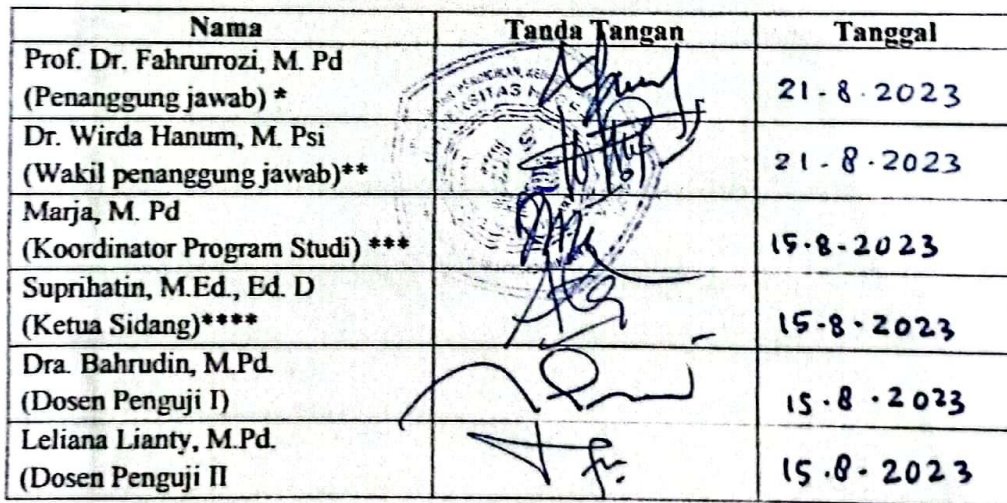 Nama Tanda Tangan Tanggal
Prof. Dr. Fahrurrozi, M. Pd
(Penanggung jawab) * 21-8-2023
Dr. Wirda Hanum, M. Psi
(Wakil penanggung jawab)** 21-8-2023
Marja, M. Pd
(Koordinator Program Studi) *** 15-8-2023
Suprihatin, M.Ed., Ed. D
(Ketua Sidang)**** 15-8-2023
Dra. Bahrudin, M.Pd.
(Dosen Penguji I) 15-8-2023
Leliana Lianty, M.Pd.
(Dosen Penguji II 15-8-2023